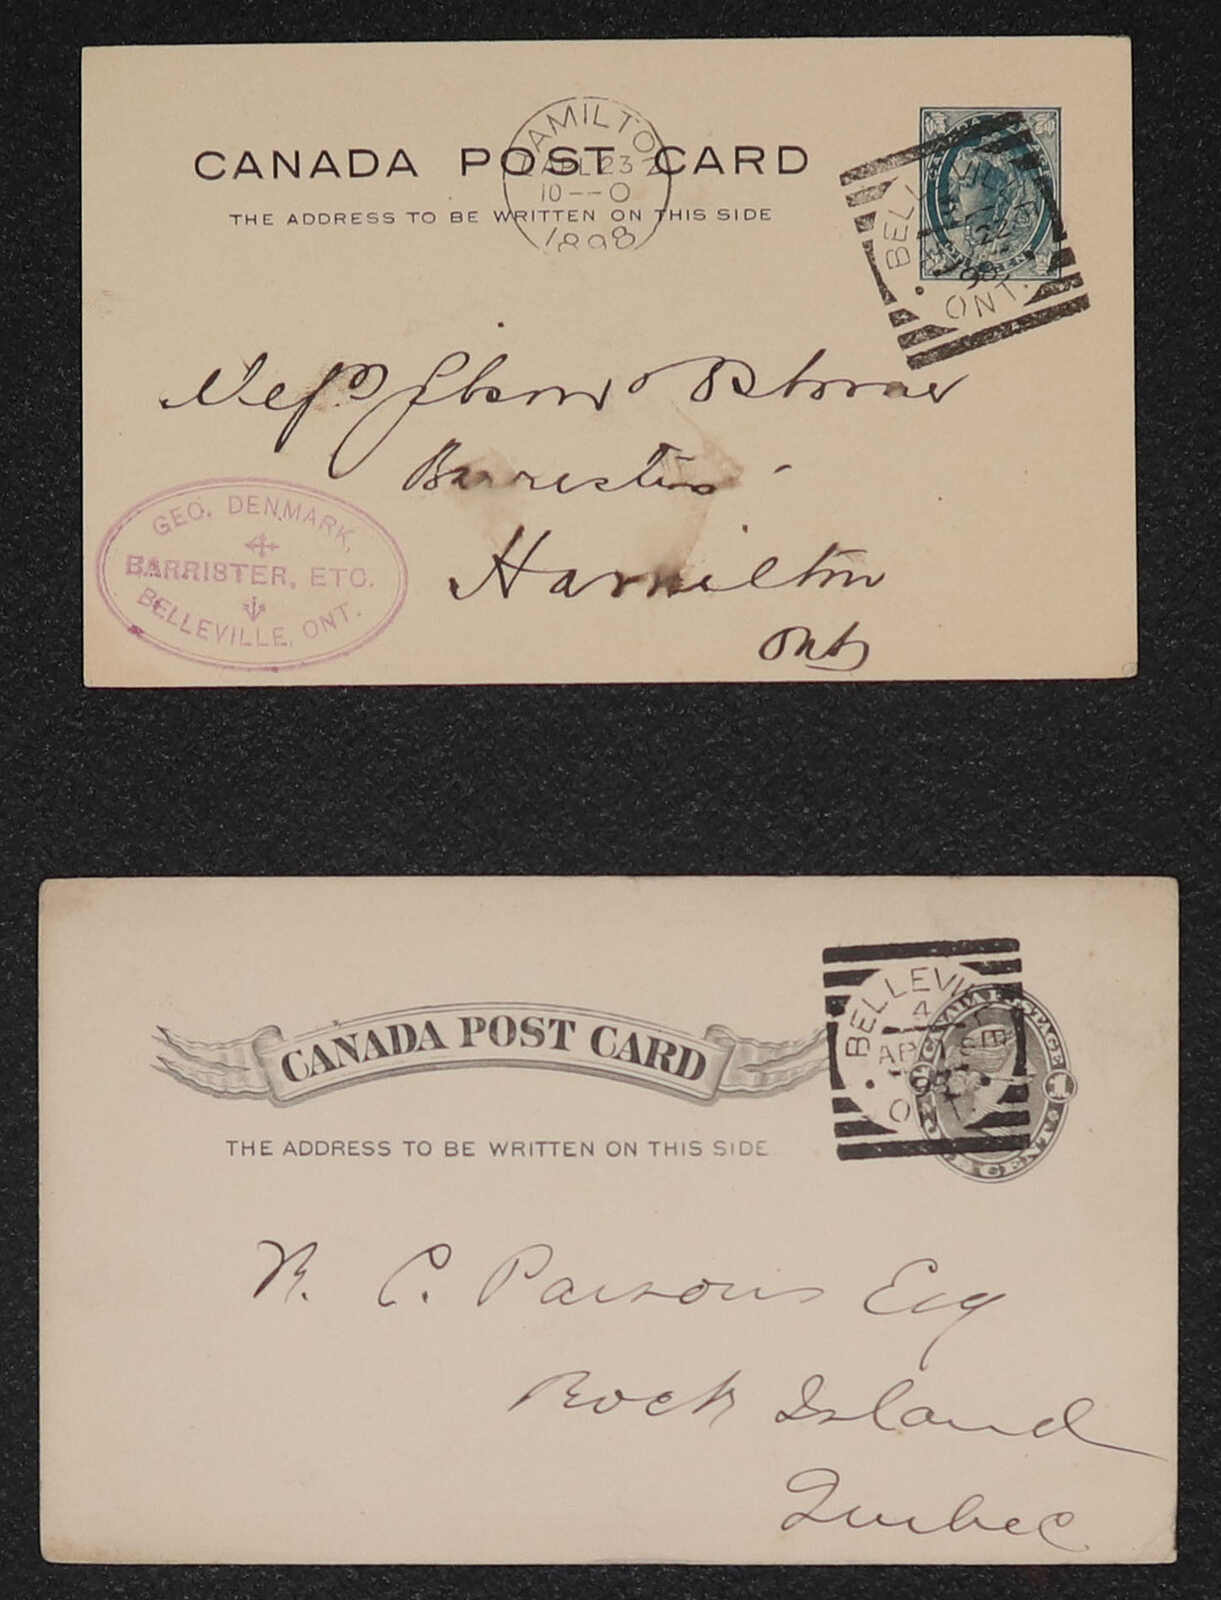 CANADA POST CARD
THE ADDRESS TO BE WRITTEN ON THIS SIDE
HAMILTON
10--0
1898
BELLEVILLE
22
98
ONT.
Barristers
Hamilton
Ont
GEO. DENMARK,
BARRISTER, ETC.
BELLEVILLE, ONT.
CANADA POST CARD
THE ADDRESS TO BE WRITTEN ON THIS SIDE
BELLEVILLE
4
AP
ONT.
C. Parsons Esq
Rock Island
Quebec